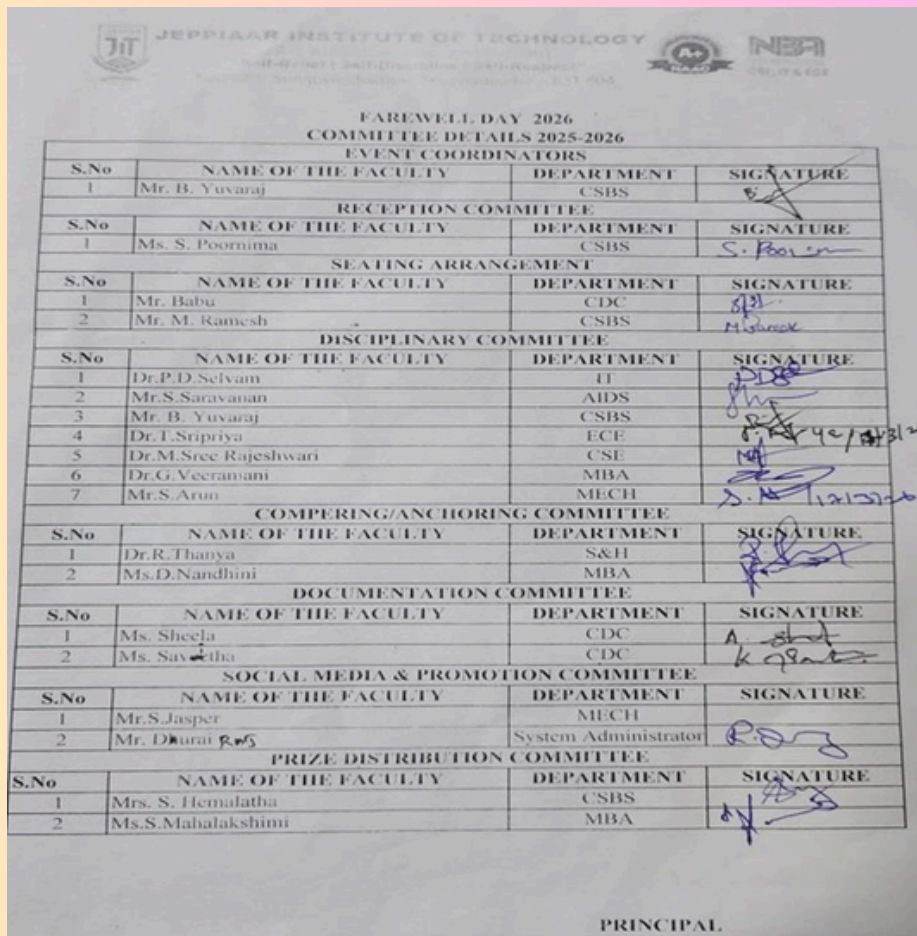 JiT
JEPPIAAR INSTITUTE OF TECHNOLOGY
A+
NAAC
NBA
FAREWELL DAY 2026
COMMITTEE DETAILS 2025-2026
EVENT COORDINATORS
S.No NAME OF THE FACULTY DEPARTMENT SIGNATURE
1 Mr. B. Yuvaraj CSBS
RECEPTION COMMITTEE
S.No NAME OF THE FACULTY DEPARTMENT SIGNATURE
1 Ms. S. Poornima CSBS
SEATING ARRANGEMENT
S.No NAME OF THE FACULTY DEPARTMENT SIGNATURE
1 Mr. Babu CDC
2 Mr. M. Ramesh CSBS
DISCIPLINARY COMMITTEE
S.No NAME OF THE FACULTY DEPARTMENT SIGNATURE
1 Dr.P.D.Selvam IT
2 Mr.S.Saravanan AIDS
3 Mr. B. Yuvaraj CSBS
4 Dr.T.Sripriya ECE
5 Dr.M.Sree Rajeshwari CSE
6 Dr.G.Veeramani MBA
7 Mr.S.Arun MECH
COMPERING/ANCHORING COMMITTEE
S.No NAME OF THE FACULTY DEPARTMENT SIGNATURE
1 Dr.R.Thanya S&H
2 Ms.D.Nandhini MBA
DOCUMENTATION COMMITTEE
S.No NAME OF THE FACULTY DEPARTMENT SIGNATURE
1 Ms. Sheela CDC
2 Ms. CDC
SOCIAL MEDIA & PROMOTION COMMITTEE
S.No NAME OF THE FACULTY DEPARTMENT SIGNATURE
1 Mr.S.Jasper MECH
2 Mr. Dhurai System Administrator
PRIZE DISTRIBUTION COMMITTEE
S.No NAME OF THE FACULTY DEPARTMENT SIGNATURE
1 Mrs. S. Hemalatha CSBS
2 Ms.S.Mahalakshimi MBA
PRINCIPAL